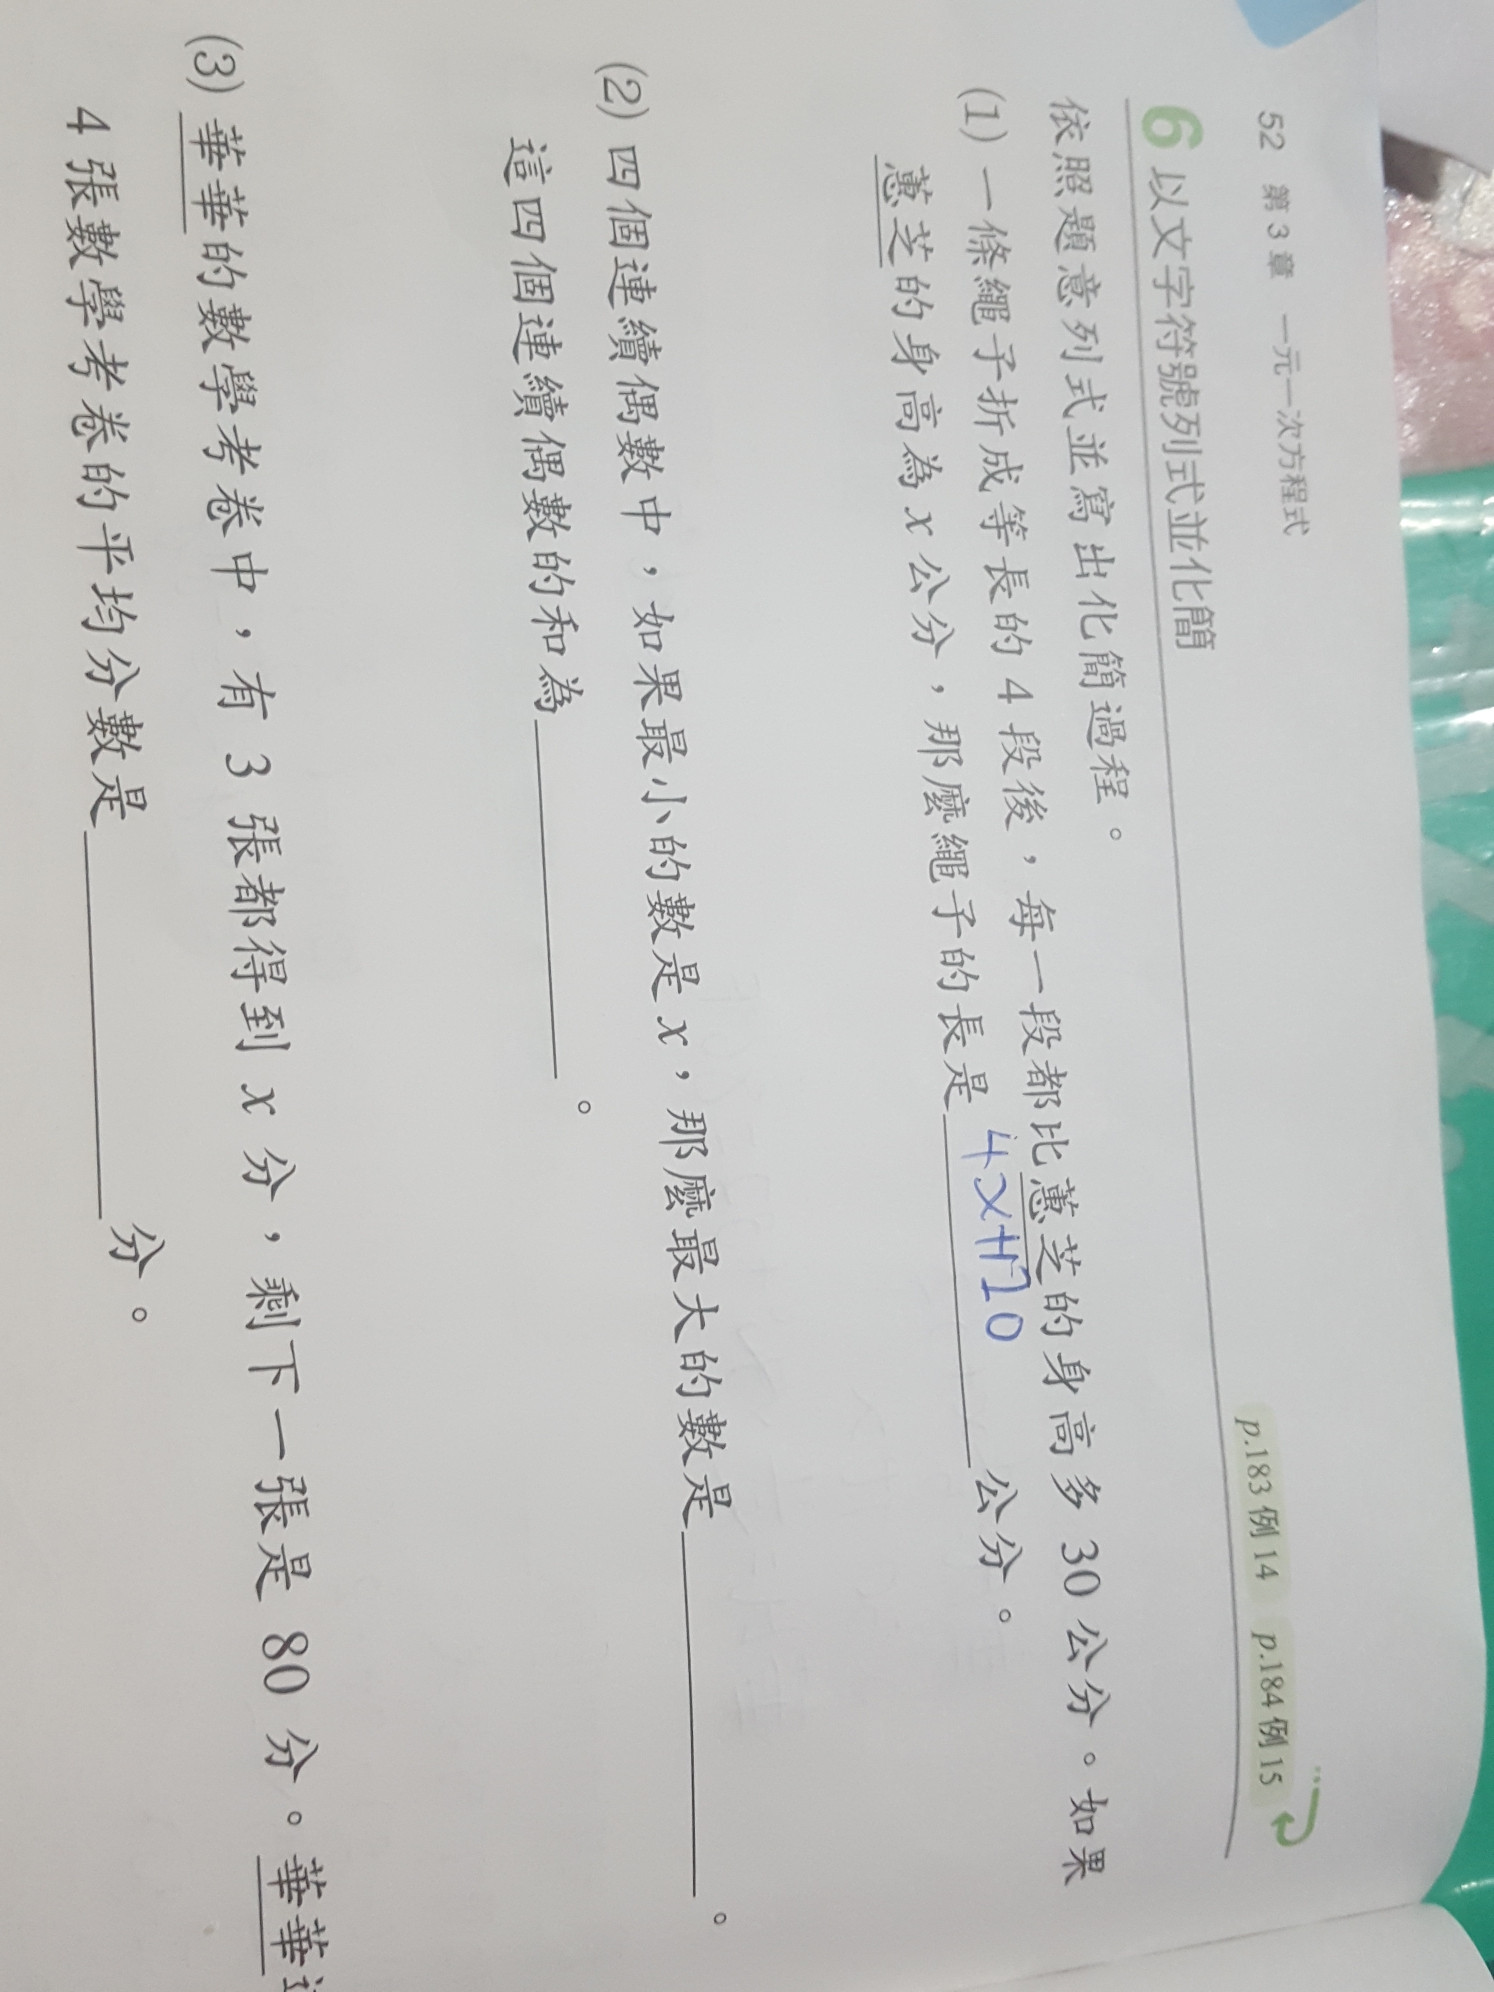 52 第3章 一元一次方程式
6 以文字符號列式並化簡 p.183 例 14 p.184 例 15
依照題意列式並寫出化簡過程。
(1) 一條繩子折成等長的 4 段後，每一段都比蕙芝的身高多 30 公分。如果
蕙芝的身高為 x 公分，那麼繩子的長是 4x+120 公分。
(2) 四個連續偶數中，如果最小的數是 x，那麼最大的數是 。
這四個連續偶數的和為 。
(3) 華華的數學考卷中，有 3 張都得到 x 分，剩下一張是 80 分。華華
4 張數學考卷的平均分數是 分。